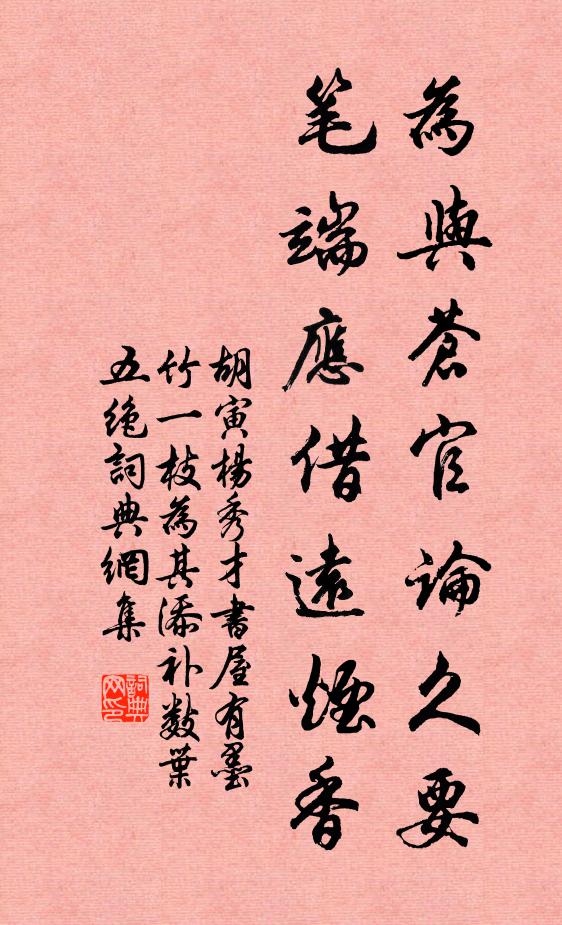 為與蒼官論久要
笔端應借遠煙香
胡寅楊秀才書屋有墨
竹一枝為其添补數葉
五绝詞典網集
詞典网印